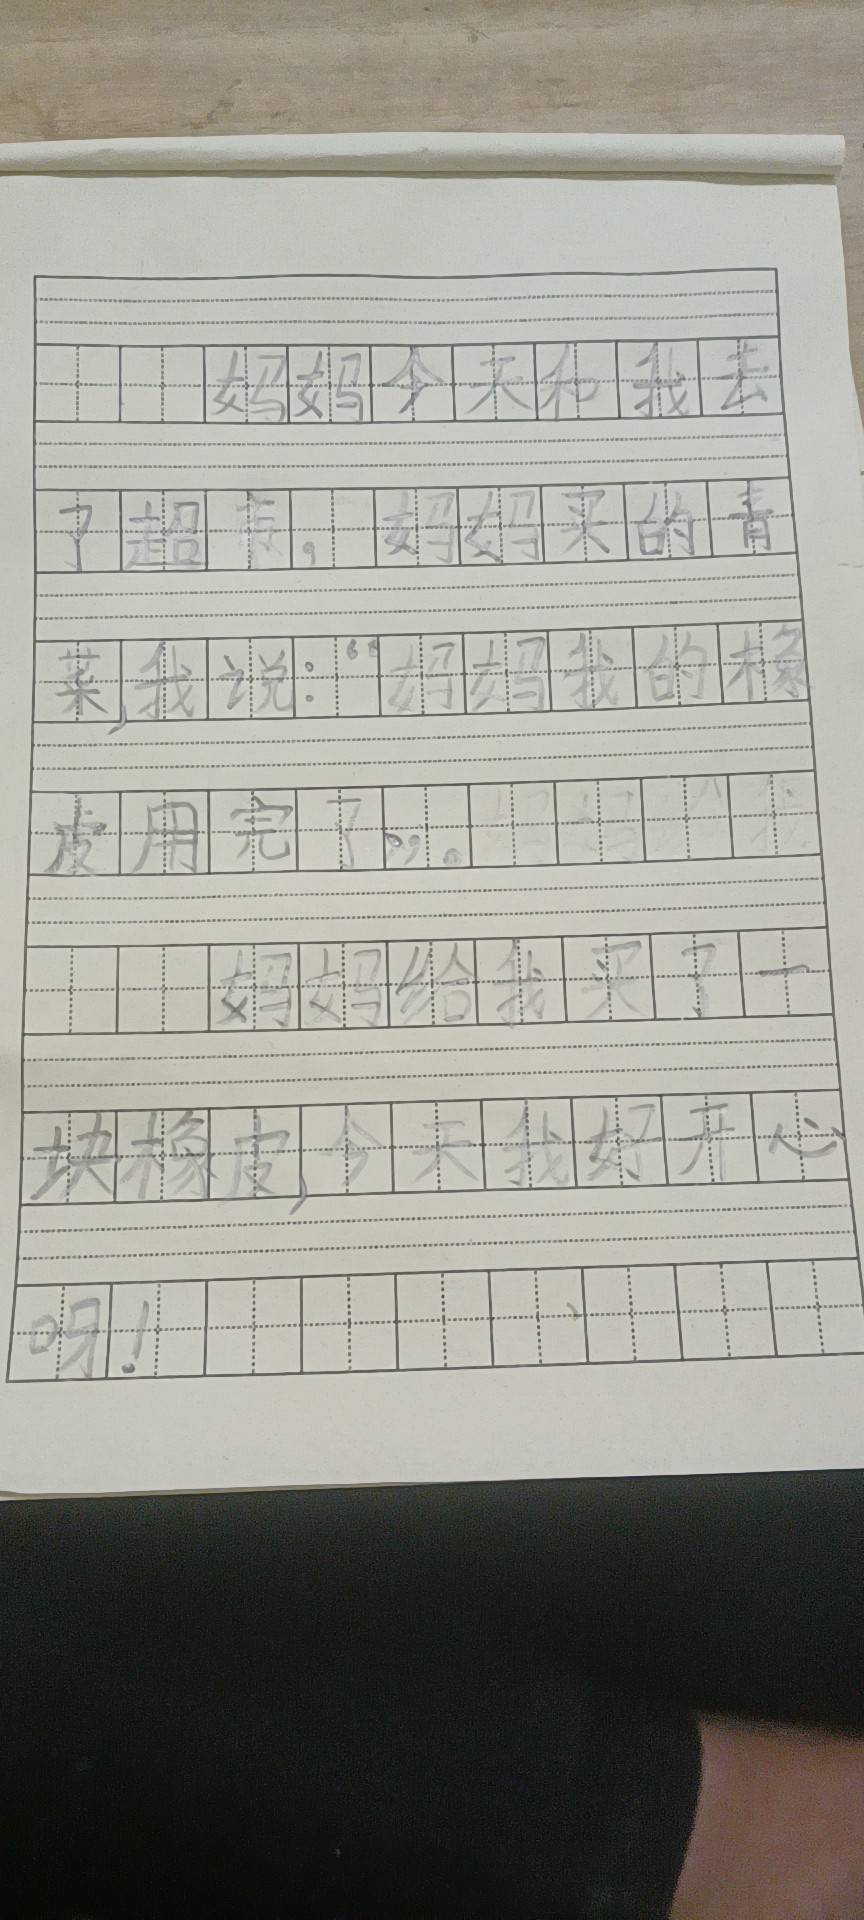 妈妈今天和我去
了超市，妈妈买的青
菜，我说：“妈妈我的橡
皮用完了”。
妈妈给我买了一
块橡皮，今天我好开心
呀！